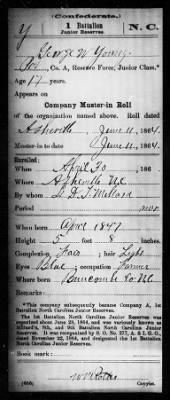 (Confederate.)
Y 1 Battalion N.C.
Junior Reserves.
George W Young
Pvt, Co. A, Reserve Force, Junior Class.*
Age 17 years.
Appears on
Company Muster-in Roll
of the organization named above. Roll dated
Asheville June 11, 1864.
Muster-in to date June 11, 1864.
Enrolled:
When April 30, 186
Where Asheville N.C.
By whom
Period war
When born April 1847
Height 5 feet 8 inches.
Complexion Fair; hair Light
Eyes Blue; occupation Farmer
Where born Buncombe Co N.C.
Remarks:
*This company subsequently became Company A, 1st
Battalion North Carolina Junior Reserves.
The 1st Battalion North Carolina Junior Reserves was
organized about June 28, 1864, and was variously known as
Millard's, 9th, and 9th Battalion North Carolina Junior
Reserves. It was reorganized by S. O. No. 277, A. & I. G. O.,
dated November 22, 1864, and designated the 1st Battalion
North Carolina Junior Reserves.
Book mark:
Copyist.